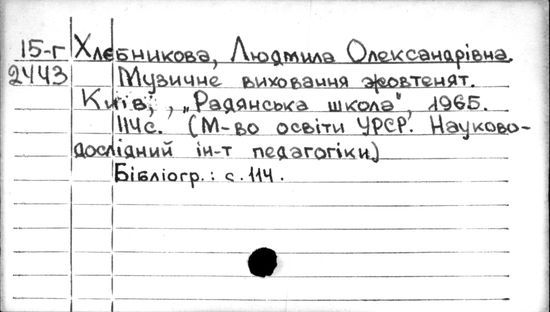 15-г Хлєбникова, Людмила Олександрівна.
2443 Музичне виховання жовтенят.
Київ, „Радянська школа", 1965.
114с. (М-во освіти УРСР. Науково-
дослідний ін-т педагогіки)
Бібліогр.: с.114.